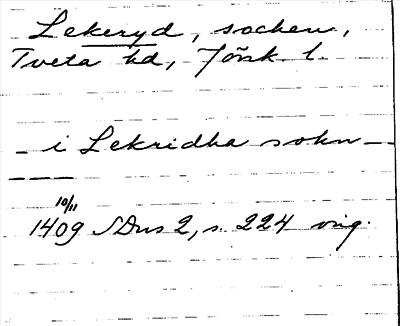 Lekeryd, socken,
Tveta hd, Jönk. l.
– i Lekridha sokn –
– – –
10/11
1409 SDns 2, s. 224 orig.